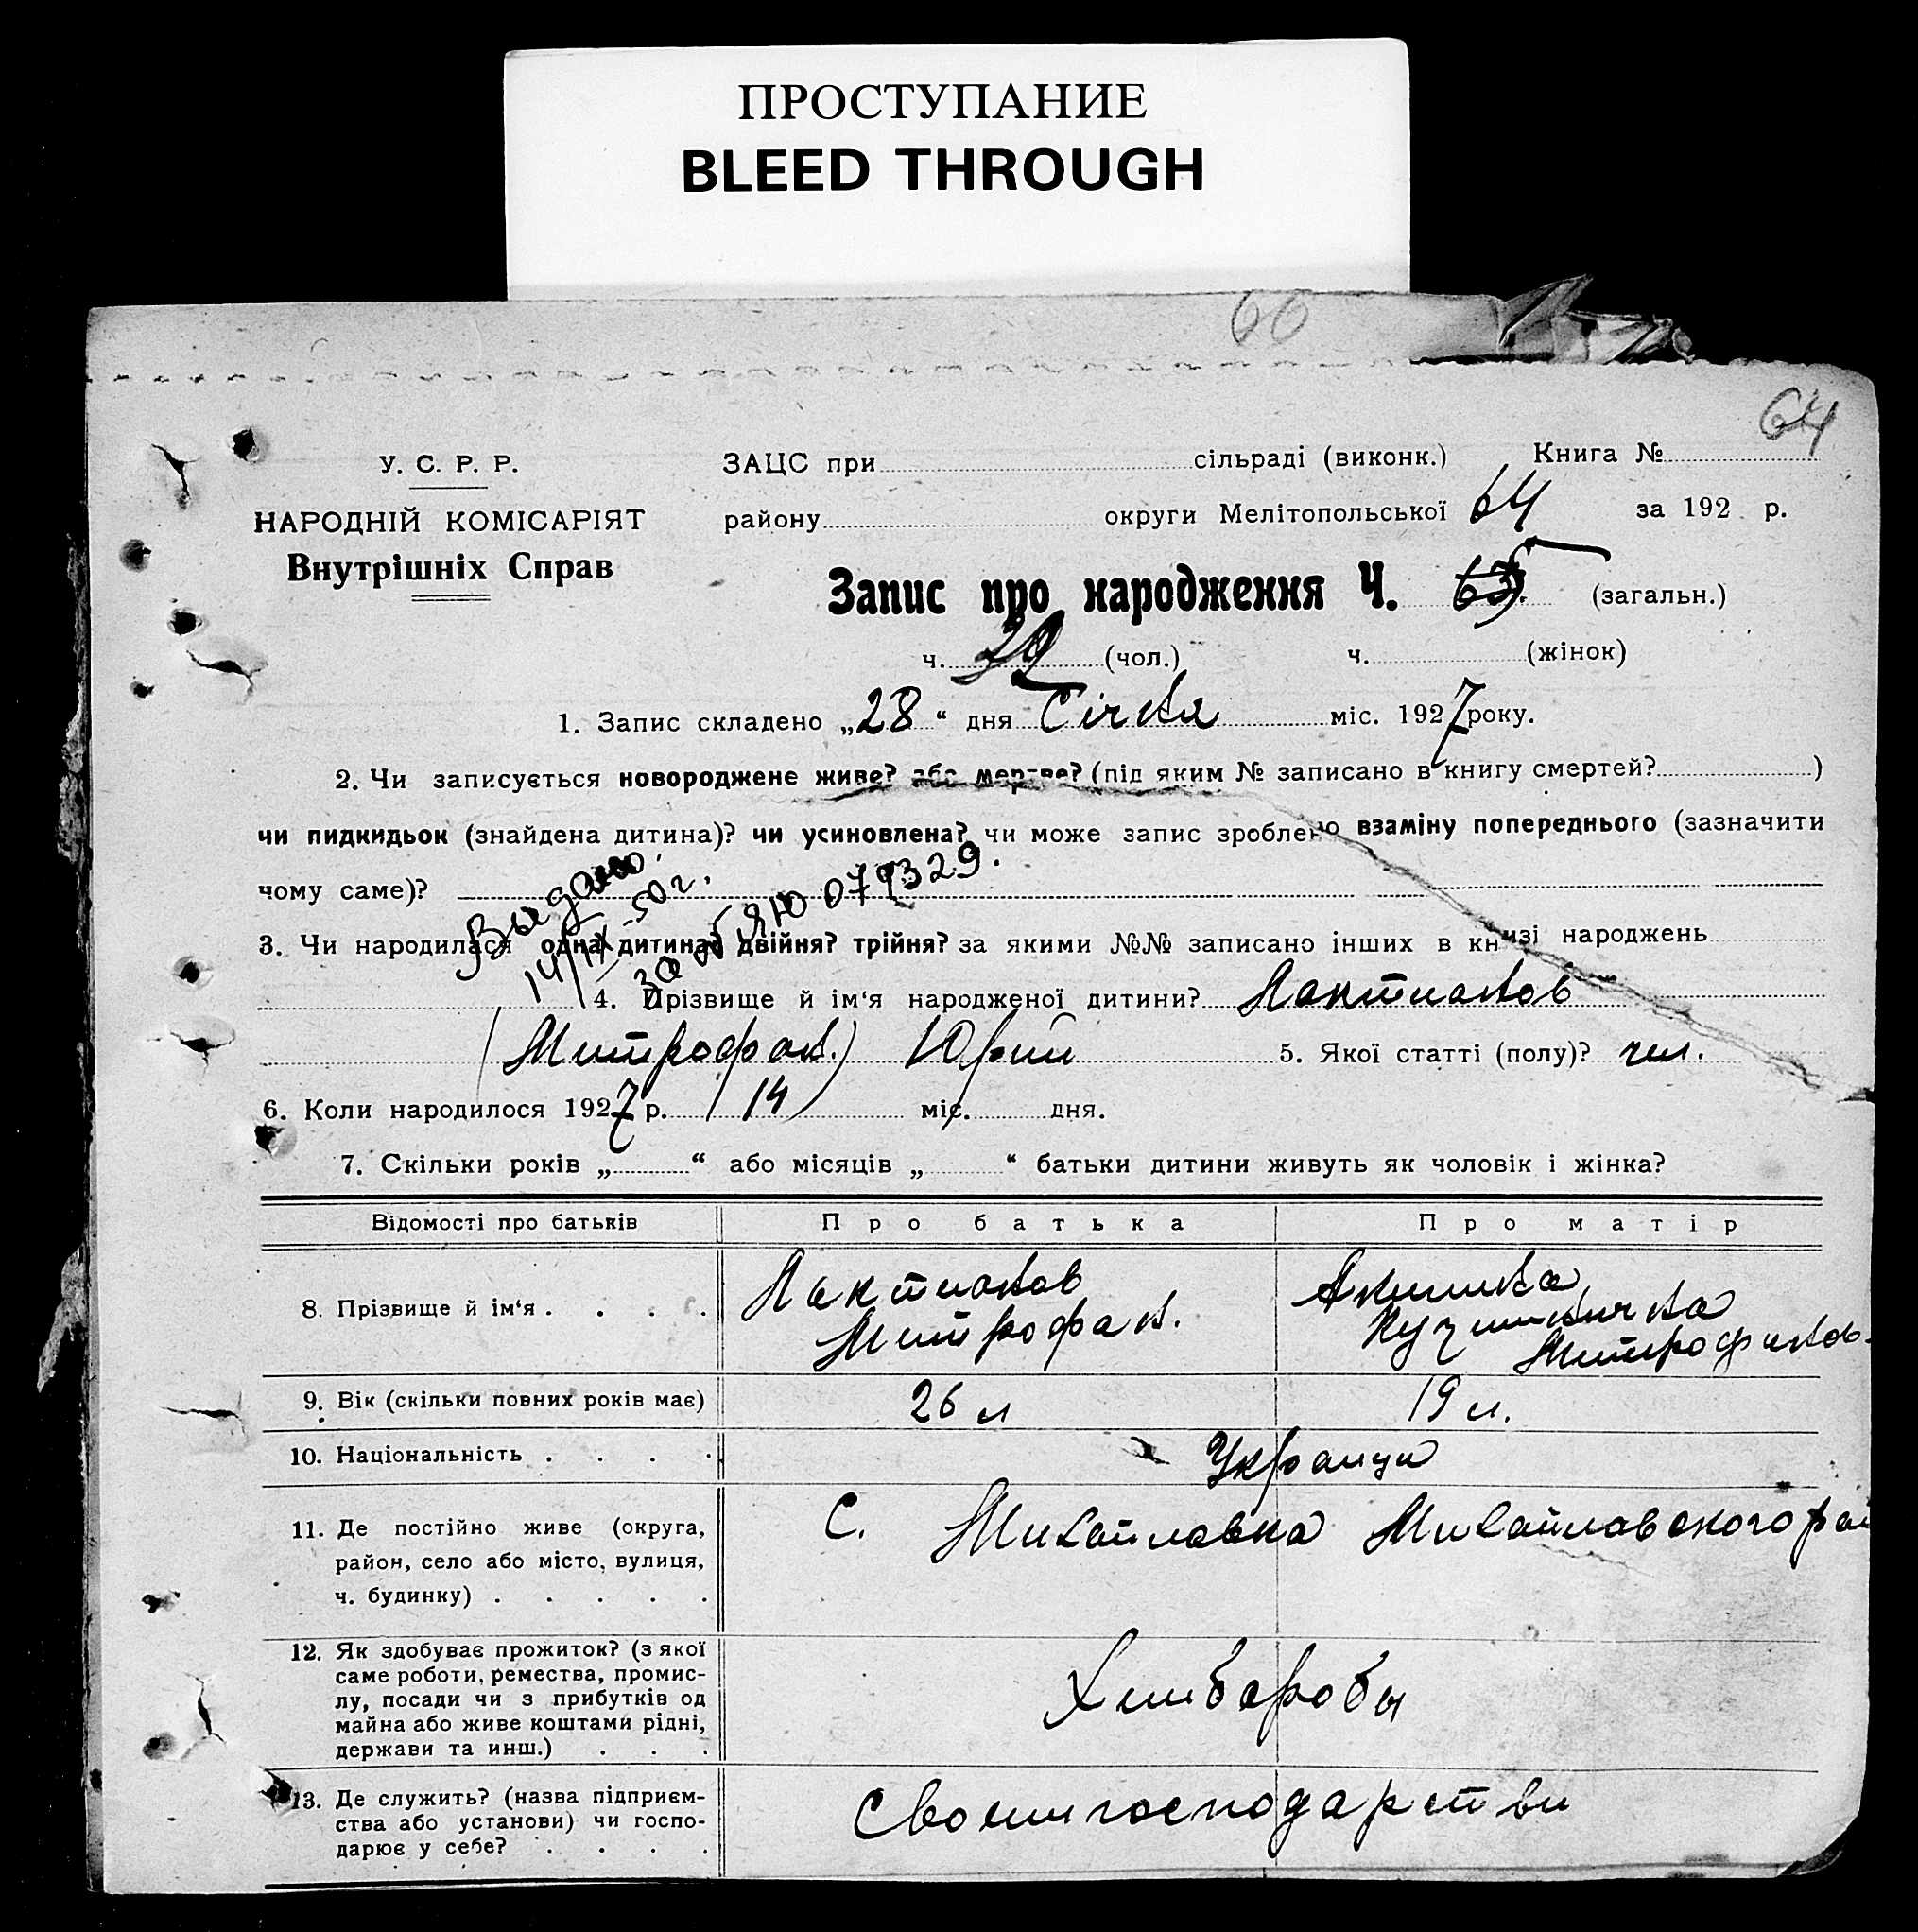 ПРОСТУПАНИЕ
BLEED THROUGH
66
64
У. С. Р. Р.
НАРОДНІЙ КОМІСАРІЯТ
Внутрішніх Справ
ЗАЦС при сільраді (виконк.) Книга №
району округи Мелітопольської 64 за 192 р.
Запис про народження Ч. (загальн.)
ч. (чол.) ч. (жінок)
1. Запис складено „28“ дня Січня міс. 1927 року.
2. Чи записується новороджене живе? або мертве? (під яким № записано в книгу смертей? )
чи пидкидьок (знайдена дитина)? чи усиновлена? чи може запис зроблено взаміну попереднього (зазначити
чому саме)?
Выдано
14/IX-50 г.
ЯЮ 079329.
3. Чи народилася одна дитина? двійня? трійня? за якими №№ записано інших в книзі народжень
4. Прізвище й ім‘я народженої дитини? Лактионов
(Митрофан.) Юрий 5. Якої статті (полу)? чол.
6. Коли народилося 1927 р. 14 міс. дня.
7. Скільки років „ “ або місяців „ “ батьки дитини живуть як чоловік і жінка?
Відомості про батьків Про батька Про матір
8. Прізвище й ім‘я . . . . Лактионов Акулина
Митрофан. Кузьминична
Митрофанов.
9. Вік (скільки повних років має) 26 л 19 л.
10. Національність . . . . Украинци
11. Де постійно живе (округа, С. Михайловка Михайловского рай
район, село або місто, вулиця,
ч. будинку) . . . . .
12. Як здобуває прожиток? (з якої
саме роботи, ремества, промис-
лу, посади чи з прибутків од Хлибороби
майна або живе коштами рідні,
держави та инш.) . . .
13. Де служить? (назва підприєм- Своим господарстви
ства або установи) чи госпо-
дарює у себе? . . . .